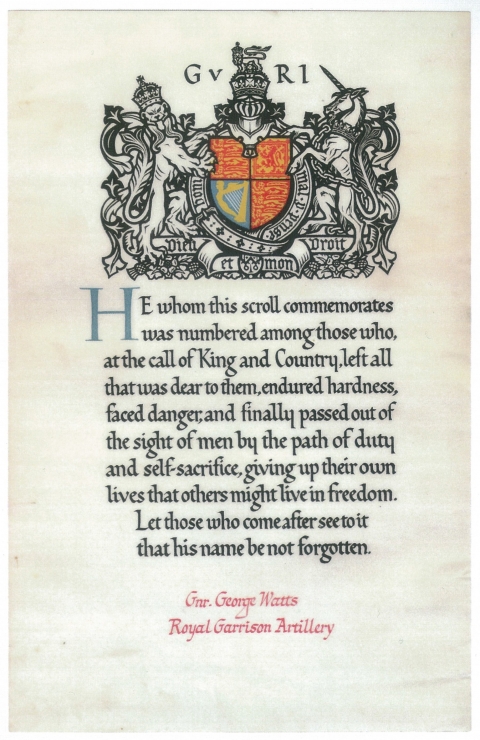 G V R I
Honi soit qui mal y pense
Dieu et mon Droit
HE whom this scroll commemorates
was numbered among those who,
at the call of King and Country, left all
that was dear to them, endured hardness,
faced danger, and finally passed out of
the sight of men by the path of duty
and self-sacrifice, giving up their own
lives that others might live in freedom.
Let those who come after see to it
that his name be not forgotten.
Gnr. George Watts
Royal Garrison Artillery